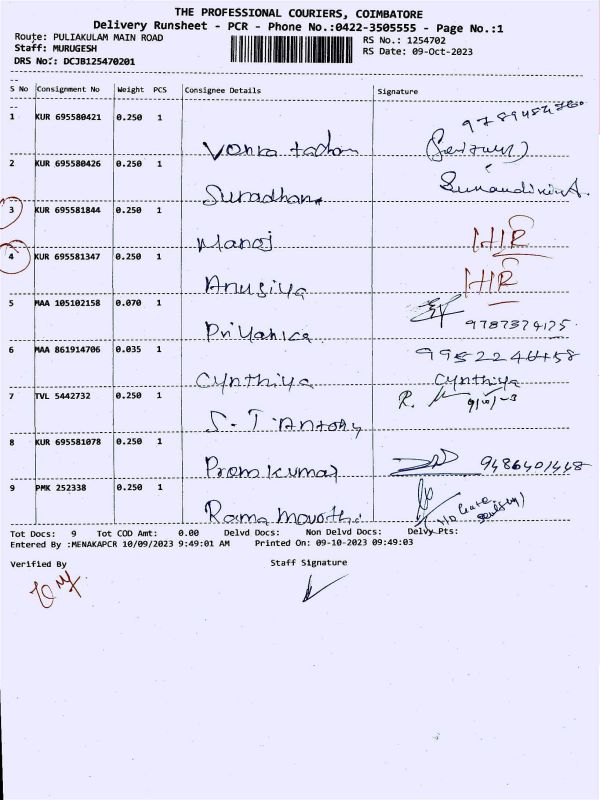 THE PROFESSIONAL COURIERS, COIMBATORE
Delivery Runsheet - PCR - Phone No.:0422-3505555 - Page No.:1
Route: PULIAKULAM MAIN ROAD
RS No.: 1254702
Staff: MURUGESH
RS Date: 09-Oct-2023
DRS No.: DCJB125470201
S No Consignment No Weight PCS Consignee Details Signature
1 KUR 695580421 0.250 1
2 KUR 695580426 0.250 1
3 KUR 695581844 0.250 1
Manoj HIR
4 KUR 695581347 0.250 1
Anusiya HIR
5 MAA 105102158 0.070 1
Priyanka 9787374175
6 MAA 861914706 0.035 1
9952246458
Cynthiya Cynthiya
7 TVL 5442732 0.250 1
R.
S. T. Antony
8 KUR 695581078 0.250 1
Premkumar 9486401448
9 PMK 252338 0.250 1
Tot Docs: 9 Tot COD Amt: 0.00 Delvd Docs: Non Delvd Docs: Delvy Pts:
Entered By :MENAKAPCR 10/09/2023 9:49:01 AM Printed On: 09-10-2023 09:49:03
Verified By Staff Signature